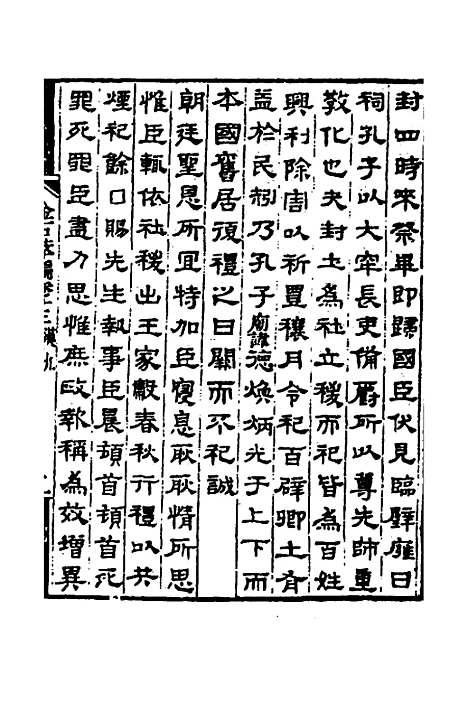 封四時來祭畢即歸國臣伏見臨辟雍日
祠孔子以大宰長吏備爵所以尊先師重
敎化也夫封土為社立稷而祀皆為百姓
興利除害以祈豐穰月令祀百辟卿士有
益於民矧乃孔子廟諱德煥炳光于上下而
本國舊居復禮之日闕而不祀誠
朝廷聖恩所宜特加臣寑息耿耿情所思
惟臣輒依社稷出王家穀春秋行禮以共
煙祀餘□賜先生執事臣晨頓首頓首死
罪死罪臣盡力思惟庶政報稱為效增異